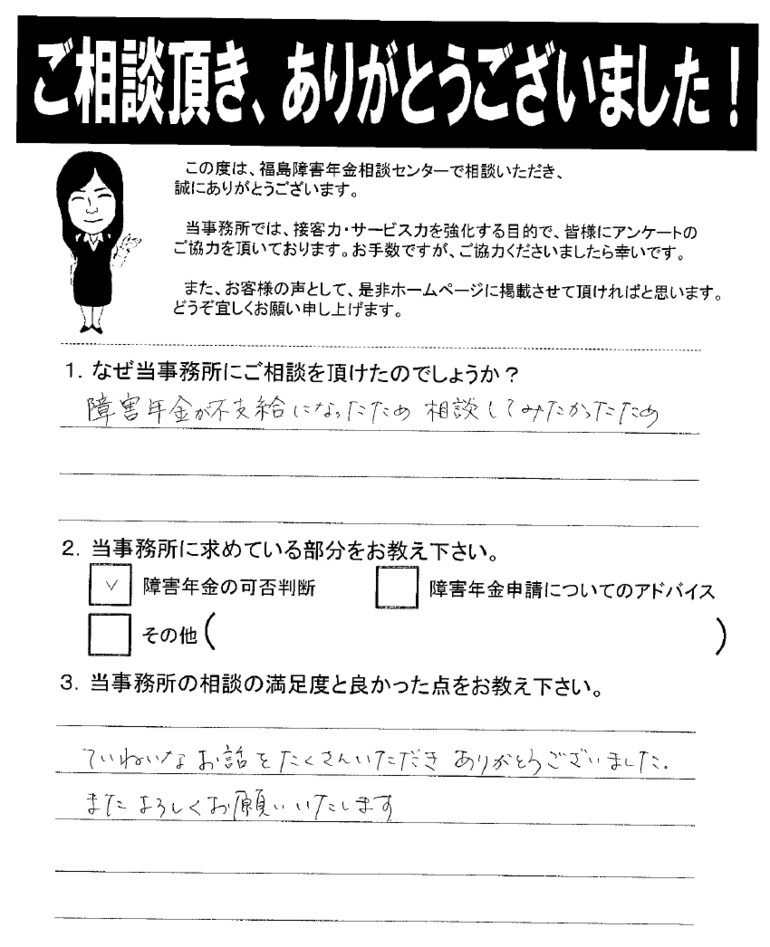 ご相談頂き、ありがとうございました！
この度は、福島障害年金相談センターで相談いただき、
誠にありがとうございます。
当事務所では、接客力・サービス力を強化する目的で、皆様にアンケートの
ご協力を頂いております。お手数ですが、ご協力くださいましたら幸いです。
また、お客様の声として、是非ホームページに掲載させて頂ければと思います。
どうぞ宜しくお願い申し上げます。
１．なぜ当事務所にご相談を頂けたのでしょうか？
障害年金が不支給になったため 相談してみたかったため
２．当事務所に求めている部分をお教え下さい。
✓ 障害年金の可否判断 障害年金申請についてのアドバイス
その他（ ）
３．当事務所の相談の満足度と良かった点をお教え下さい。
ていねいなお話をたくさんいただき ありがとうございました。
また よろしくお願いいたします